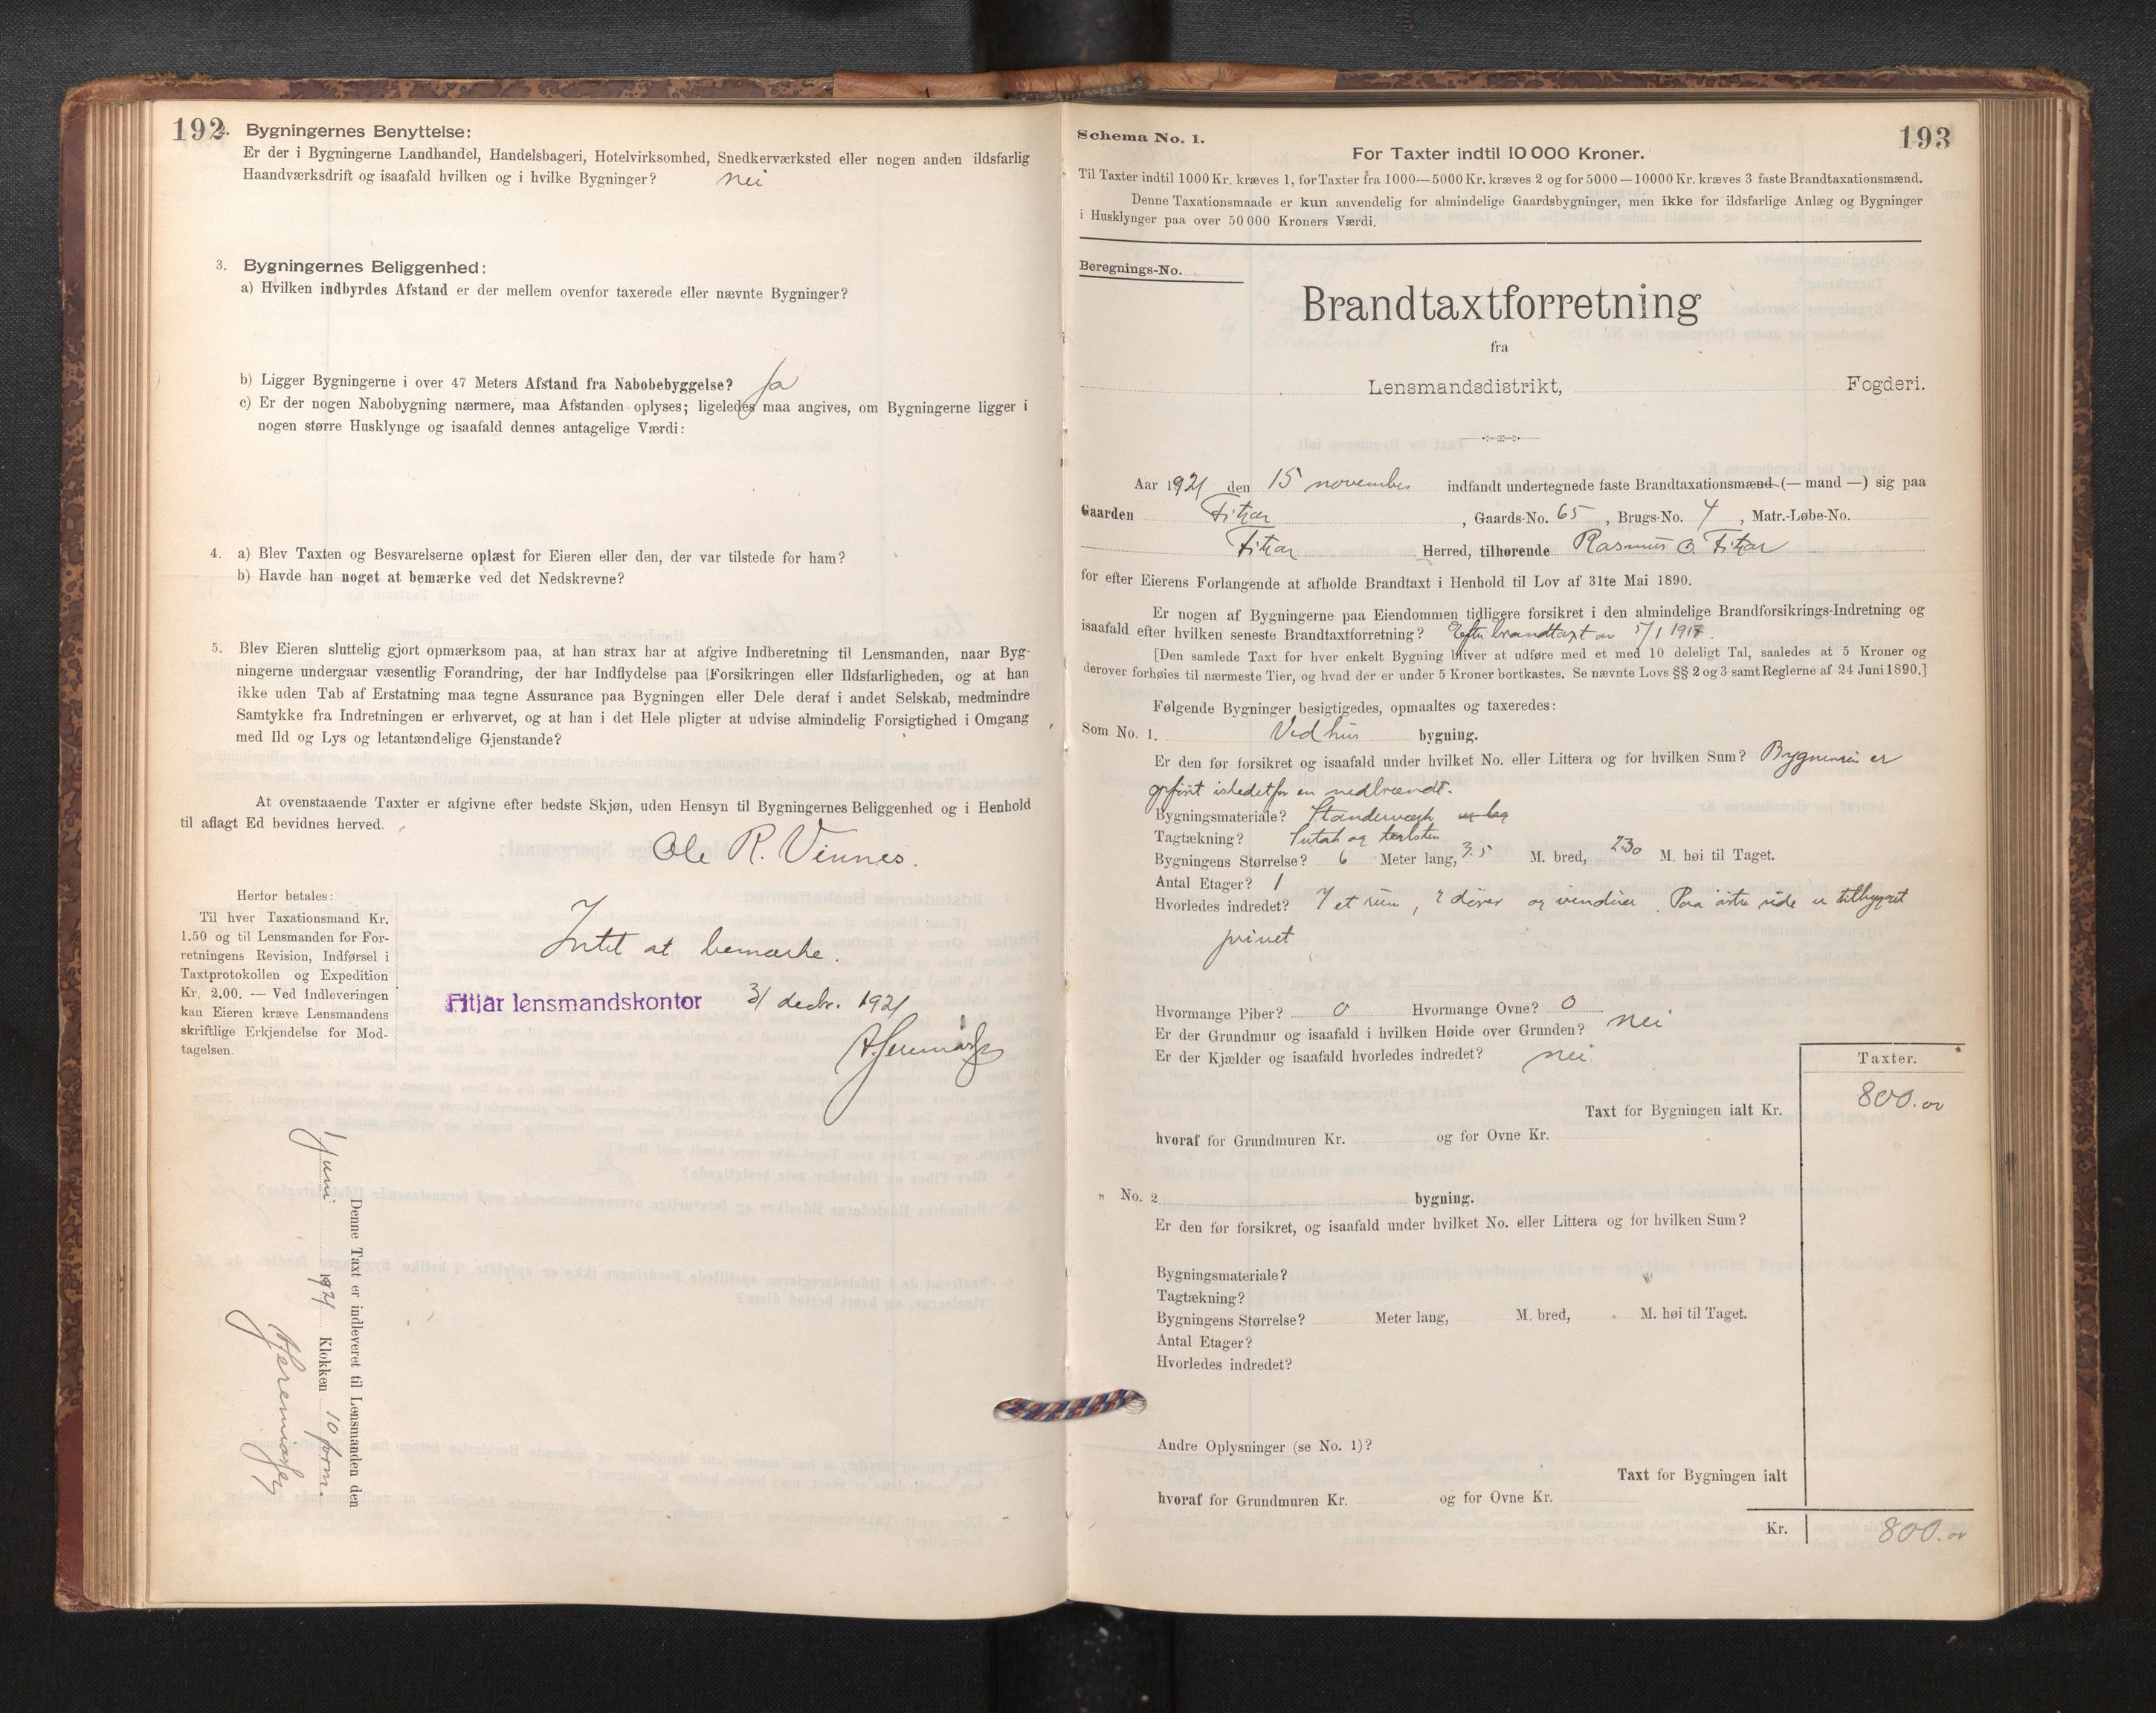 192
2. Bygningernes Benyttelse:
Er der i Bygningerne Landhandel, Handelsbageri, Hotelvirksomhed, Snedkerværksted eller nogen anden ildsfarlig
Haandværksdrift og isaafald hvilken og i hvilke Bygninger? nei
3. Bygningernes Beliggenhed:
a) Hvilken indbyrdes Afstand er der mellem ovenfor taxerede eller nævnte Bygninger?
b) Ligger Bygningerne i over 47 Meters Afstand fra Nabobebyggelse? Ja
c) Er der nogen Nabobygning nærmere, maa Afstanden oplyses; ligeledes maa angives, om Bygningerne ligger i
nogen større Husklynge og isaafald dennes antagelige Værdi:
4. a) Blev Taxten og Besvarelserne oplæst for Eieren eller den, der var tilstede for ham?
b) Havde han noget at bemærke ved det Nedskrevne?
5. Blev Eieren sluttelig gjort opmærksom paa, at han strax har at afgive Indberetning til Lensmanden, naar Byg-
ningerne undergaar væsentlig Forandring, der har Indflydelse paa [Forsikringen eller Ildsfarligheden, og at han
ikke uden Tab af Erstatning maa tegne Assurance paa Bygningen eller Dele deraf i andet Selskab, medmindre
Samtykke fra Indretningen er erhvervet, og at han i det Hele pligter at udvise almindelig Forsigtighed i Omgang
med Ild og Lys og letantændelige Gjenstande?
At ovenstaaende Taxter er afgivne efter bedste Skjøn, uden Hensyn til Bygningernes Beliggenhed og i Henhold
til aflagt Ed bevidnes herved.
Ole R. Vinnes.
Herfor betales:
Til hver Taxationsmand Kr.
1.50 og til Lensmanden for For-
retningens Revision, Indførsel i
Taxtprotokollen og Expedition
Kr. 2.00. — Ved Indleveringen
kan Eieren kræve Lensmandens
skriftlige Erkjendelse for Mod-
tagelsen.
Intet at bemærke.
Fitjar lensmandskontor 31 decbr. 1921
Denne Taxt er indleveret til Lensmanden den
juni 1921 Klokken 10 form.
193
Schema No. 1.
For Taxter indtil 10 000 Kroner.
Til Taxter indtil 1000 Kr. kræves 1, for Taxter fra 1000—5000 Kr. kræves 2 og for 5000—10000 Kr. kræves 3 faste Brandtaxationsmænd.
Denne Taxationsmaade er kun anvendelig for almindelige Gaardsbygninger, men ikke for ildsfarlige Anlæg og Bygninger
i Husklynger paa over 50 000 Kroners Værdi.
Beregnings-No.
Brandtaxtforretning
fra
Lensmandsdistrikt, Fogderi.
Aar 1921 den 15 november indfandt undertegnede faste Brandtaxationsmænd (— mand —) sig paa
Gaarden Fitjar, Gaards-No. 65, Brugs-No. 4, Matr.-Løbe-No.
Fitjar Herred, tilhørende Rasmus O. Fitjar
for efter Eierens Forlangende at afholde Brandtaxt i Henhold til Lov af 31te Mai 1890.
Er nogen af Bygningerne paa Eiendommen tidligere forsikret i den almindelige Brandforsikrings-Indretning og
isaafald efter hvilken seneste Brandtaxtforretning? Efter brandtaxt av 5/1 1917.
[Den samlede Taxt for hver enkelt Bygning bliver at udføre med et med 10 deleligt Tal, saaledes at 5 Kroner og
derover forhøies til nærmeste Tier, og hvad der er under 5 Kroner bortkastes. Se nævnte Lovs §§ 2 og 3 samt Reglerne af 24 Juni 1890.]
Følgende Bygninger besigtigedes, opmaaltes og taxeredes:
Som No. 1. Vedhus bygning.
Er den før forsikret og isaafald under hvilket No. eller Littera og for hvilken Sum? Bygningen er
opført istedetfor en nedbrændt.
Bygningsmateriale? Standervægk
Tagtækning? Sutak og teglsten
Bygningens Størrelse? 6 Meter lang, 3.5 M. bred, 2.30 M. høi til Taget.
Antal Etager? 1
Hvorledes indredet? I et rum, 2 dører og vinduer. Paa østre side er tilbygget
privet
Hvormange Piber? 0 Hvormange Ovne? 0
Er der Grundmur og isaafald i hvilken Høide over Grunden? nei
Er der Kjælder og isaafald hvorledes indredet? nei
Taxter.
Taxt for Bygningen ialt Kr. 800.00
hvoraf for Grundmuren Kr. og for Ovne Kr.
" No. 2 bygning.
Er den før forsikret, og isaafald under hvilket No. eller Littera og for hvilken Sum?
Bygningsmateriale?
Tagtækning?
Bygningens Størrelse? Meter lang, M. bred, M. høi til Taget.
Antal Etager?
Hvorledes indredet?
Andre Oplysninger (se No. 1)?
Taxt for Bygningen ialt
hvoraf for Grundmuren Kr. og for Ovne Kr.
Kr. 800.00